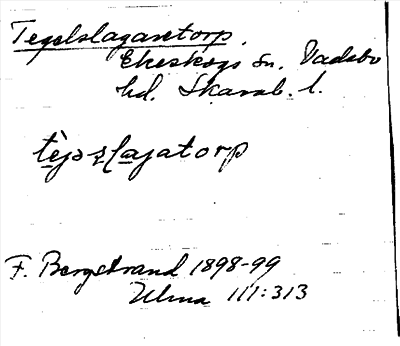 Tegelslagaretorp.
Ekeskogs sn. Vadsbo
hd. Skarab. l.
tèjəslajatorp
F. Bergstrand 1898-99
Ulma 111:313